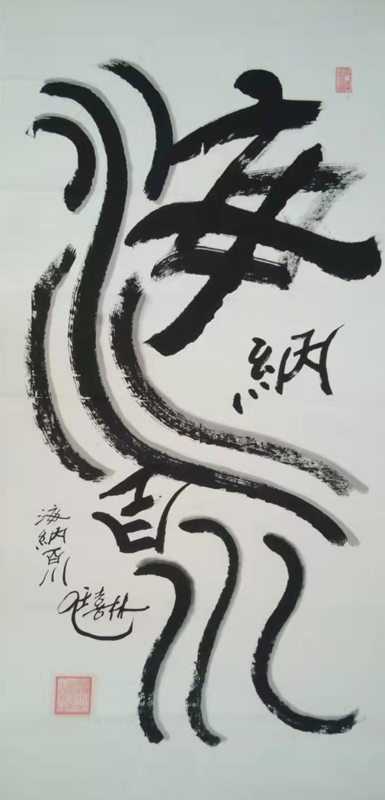 海
納
百
川
海納百川
喜林